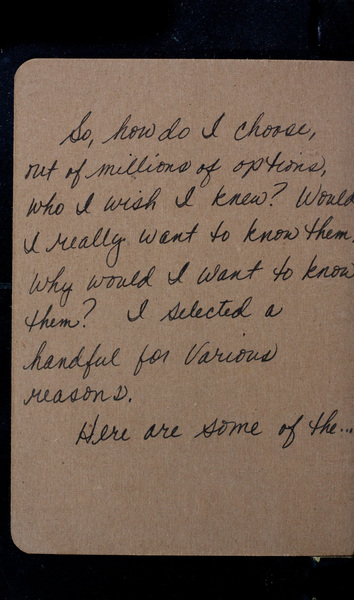 So, how do I choose,
out of millions of options,
who I wish I knew? Would
I really want to know them.
Why would I want to know
them? I selected a
handful for various
reasons.
Here are some of the...